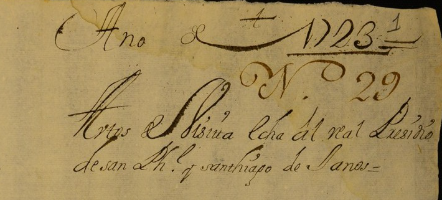 Año de 1723
N.º 29
Autos de Visita echa del real Presidio
de san Ph.e y santhiago de Janos=